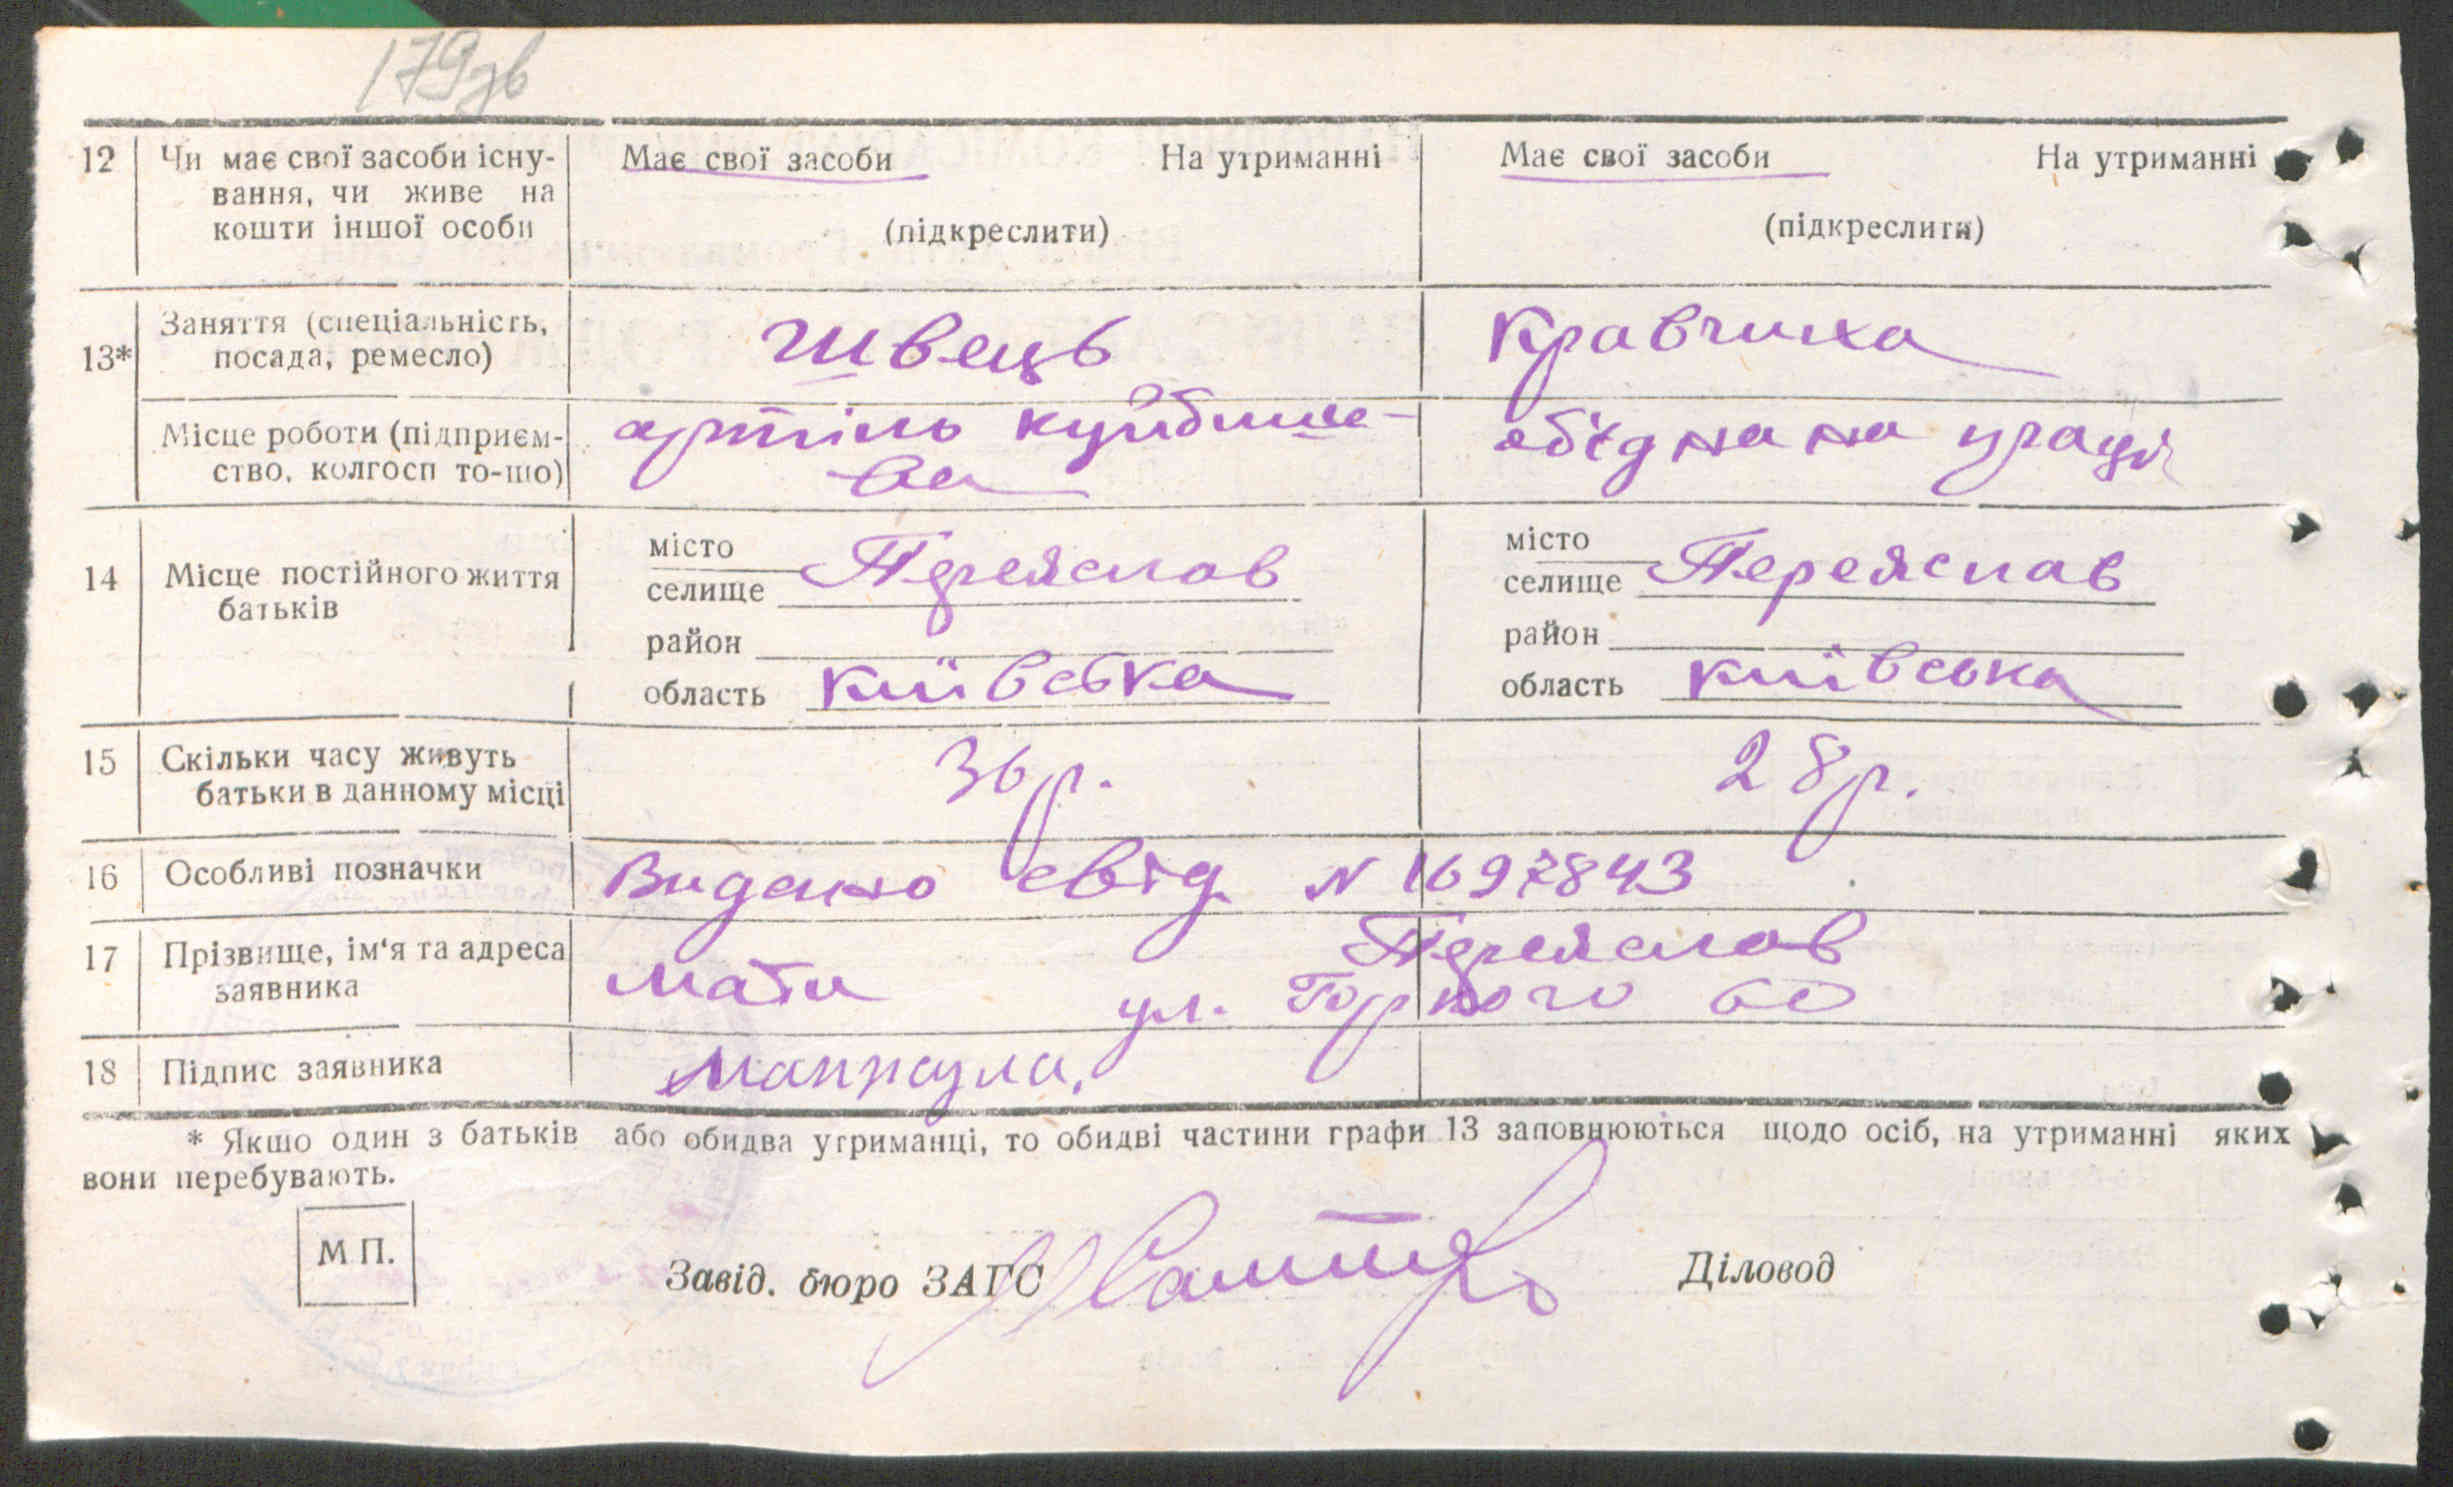 179зв
12 Чи має свої засоби існу- Має свої засоби На утриманні Має свої засоби На утриманні
вання, чи живе на
кошти іншої особи (підкреслити) (підкреслити)
13* Заняття (спеціальність, швець Кравчиха
посада, ремесло)
Місце роботи (підприєм- артіль куйбише- обіеднана праця
ство, колгосп то-що) ва
14 Місце постійного життя місто Переяслав місто Переяслав
батьків селище селище
район район
область київська область київська
15 Скільки часу живуть 36 р. 28 р.
батьки в данному місці
16 Особливі позначки Видано свід. N 1697843
17 Прізвище, ім'я та адреса мати Переяслав
заявника ул. Горького 60
18 Підпис заявника
* Якшо один з батьків або обидва утриманці, то обидві частини графи 13 заповнюються щодо осіб, на утриманні яких
вони перебувають.
М П.
Завід. бюро ЗАГС Діловод